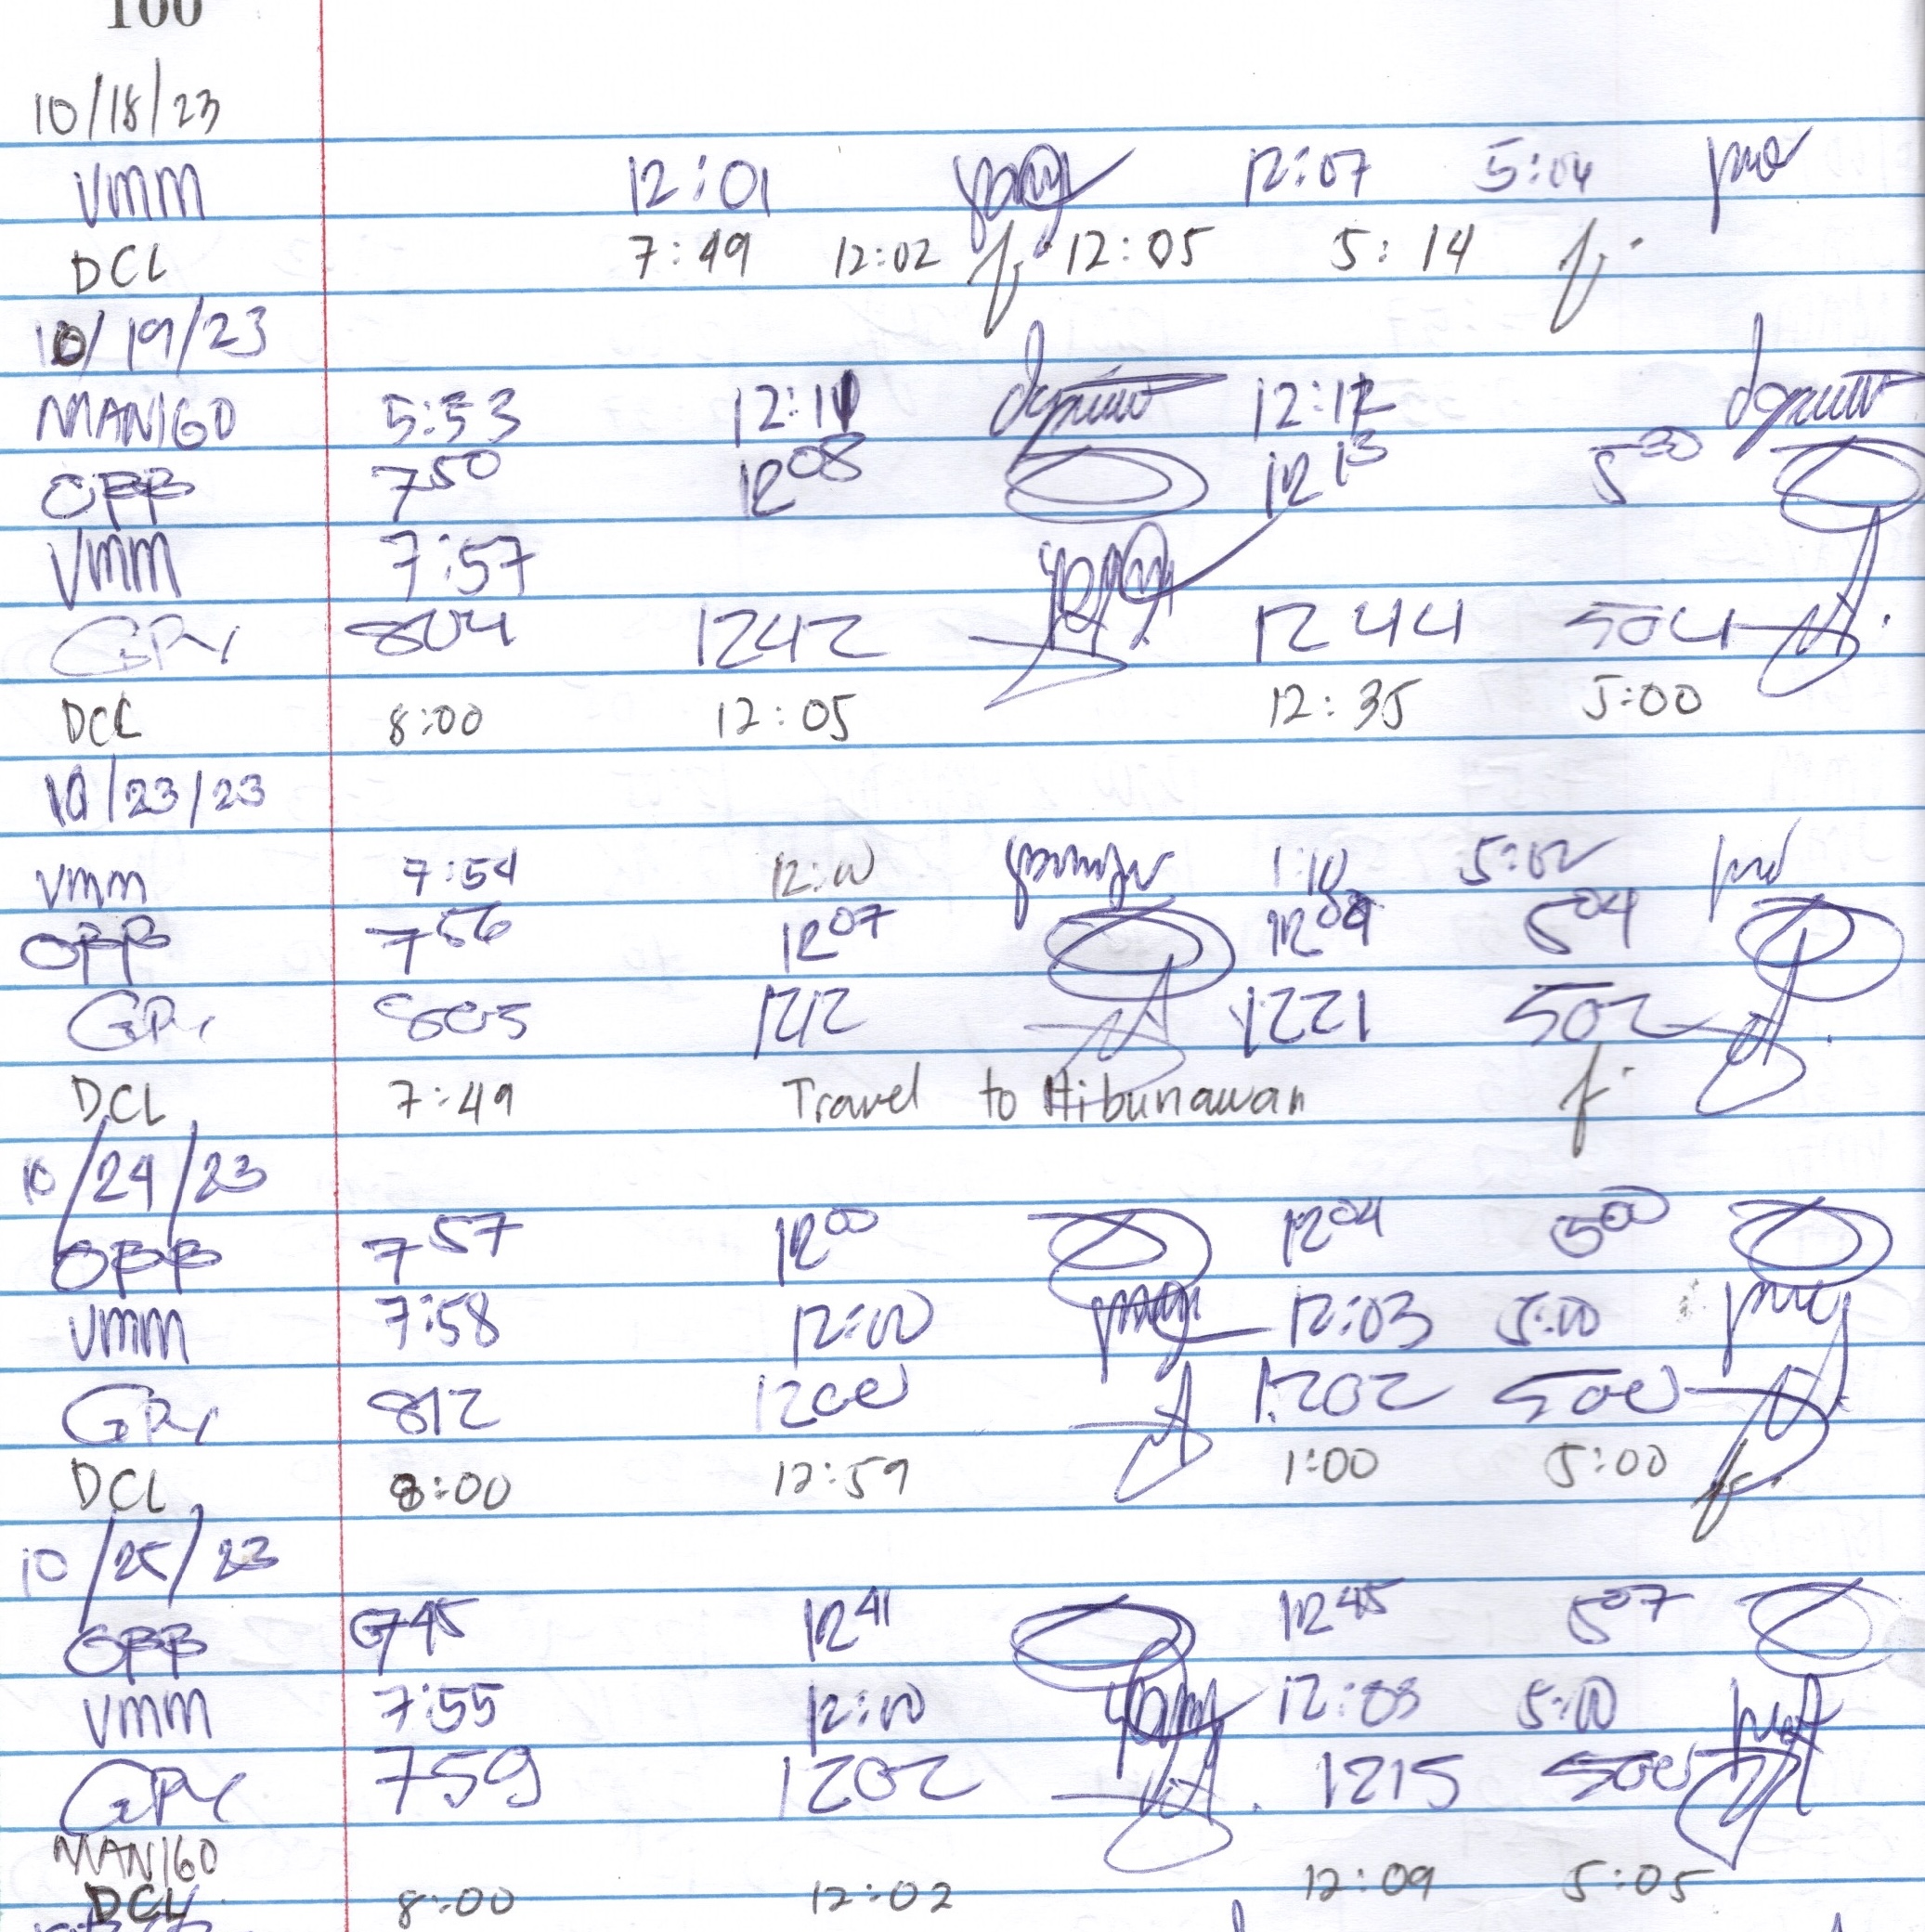 100
10/18/23
VMM 12:01 12:07 5:04
DCL 7:49 12:02 12:05 5:14
10/19/23
MANIGO 5:53 12:11 12:12
OPB 7 50 12 08 12 13 5 30
VMM 7:57
804 1242 1244 504
DCL 8:00 12:05 12:35 5:00
10/23/23
VMM 7:54 12:00 1:10 5:02
OPB 7 56 12 07 12 09 5 04
805 1212 1221 502
DCL 7:49 Travel to Hibunawan
10/24/23
OPB 7 57 12 00 12 04 5 00
VMM 7:58 12:00 12:03 5:00
812 1200 1202 500
DCL 8:00 12:59 1:00 5:00
10/25/23
OPB 745 12 41 12 45 5 07
VMM 7:55 12:00 12:03 5:00
759 1202 1215 500
MANIGO
DCL 8:00 12:02 12:09 5:05